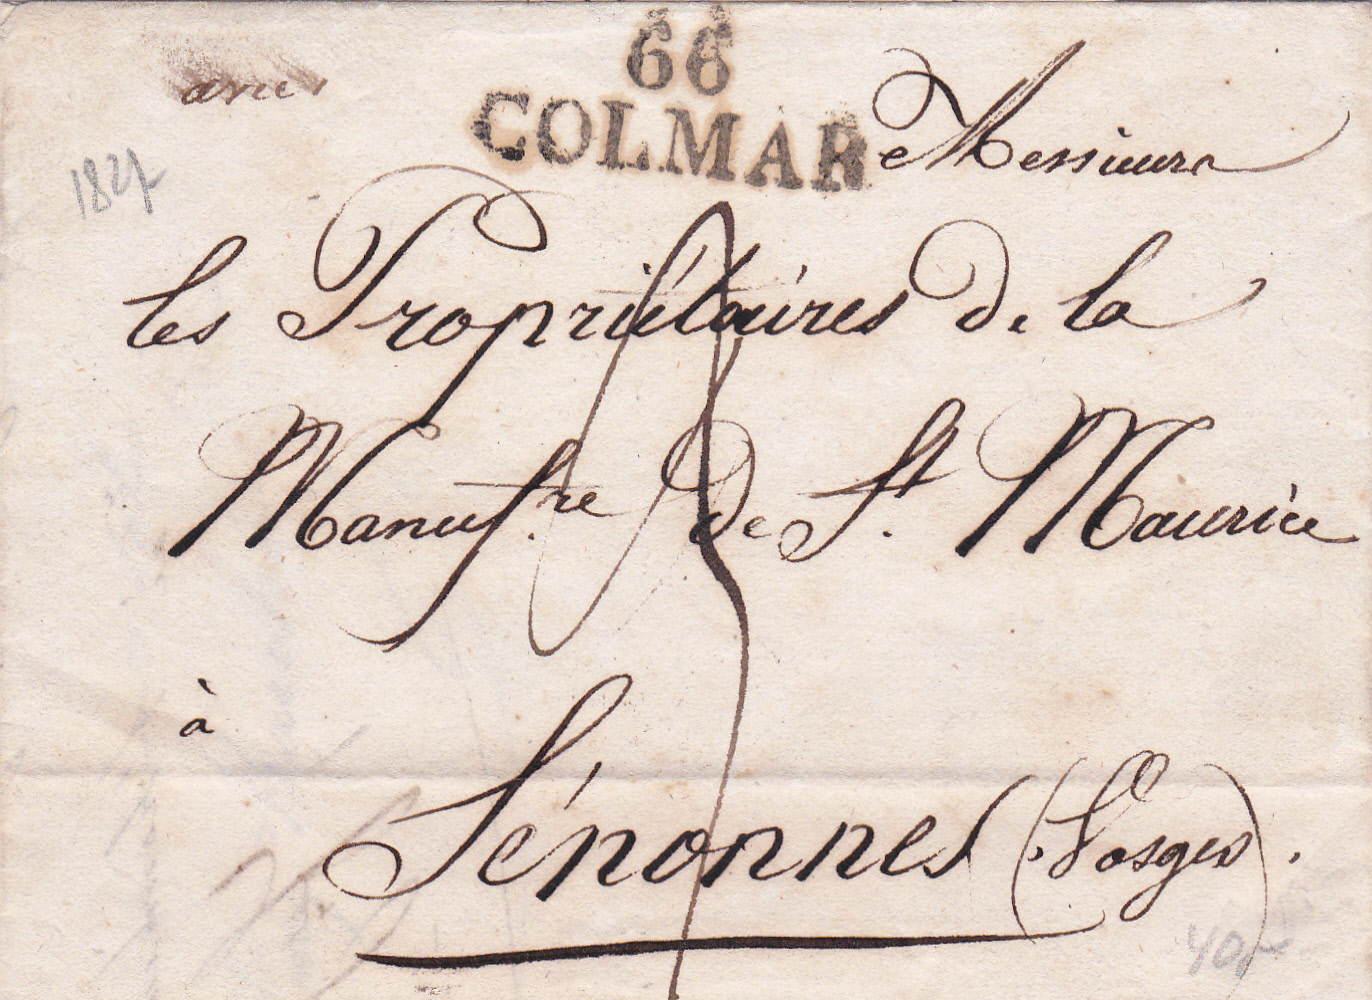 66
COLMAR
Messieurs
1827
les Propriétaires de la
Manufre. de St. Maurice
à
Sénonnes (Vosges).